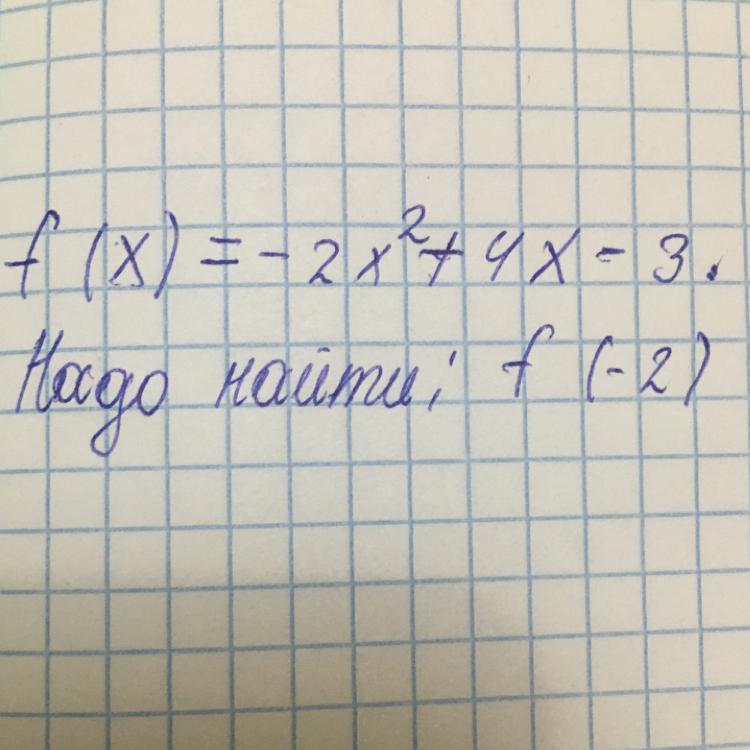 f (x) = - 2x² + 4x - 3.
Надо найти; f (-2)